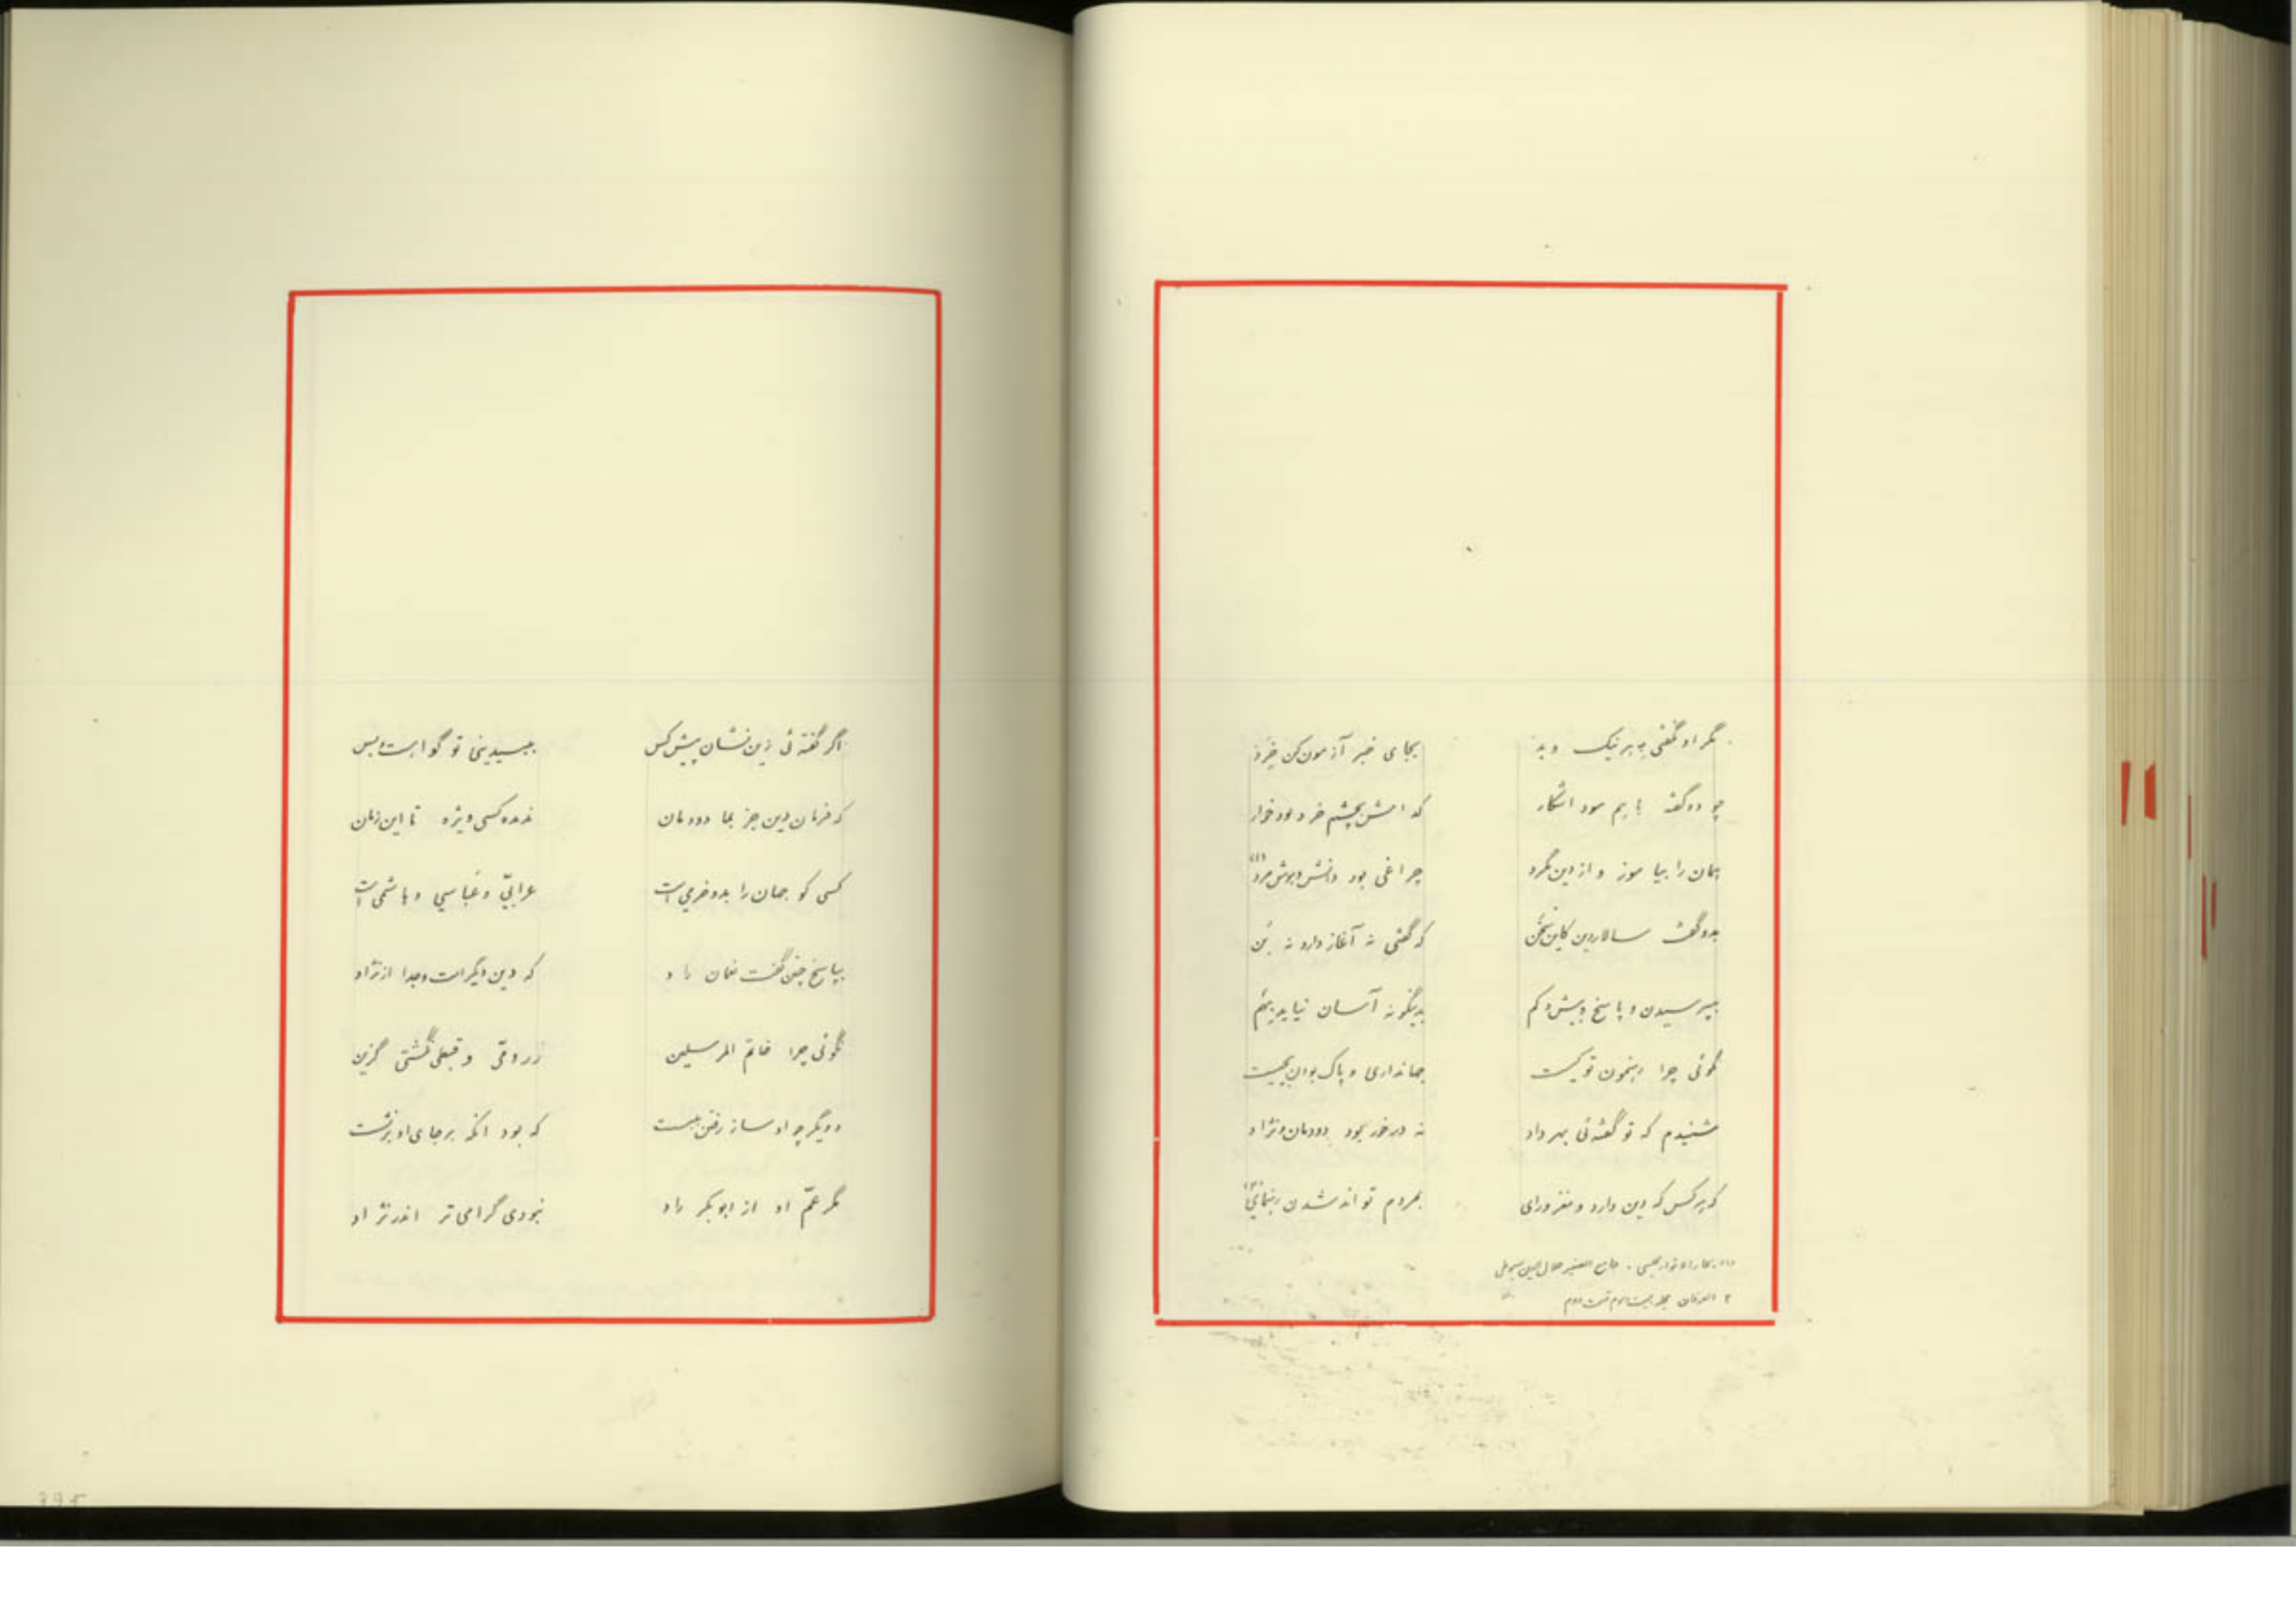 مگر او نگفتی بهر نیک و بد بجای خبر آزمون کن خرد
چو دو گفته با هم بود آشکار که امش بچشم خرد بود خوار
همان را بیاموز و از دین مگرد چراغی بود دانش و هوش مرد (۱)
بدو گفت سالار دین کاین سخن که گفتی نه آغاز دارد نه بُن
بپرسیدن و پاسخ و بیش و کم بدینگونه آسان نیاید بهم
نگوئی چرا رهنمون تو کیست جهانداری و پاک بودن بچیست
شنیدم که تو گفته‌ئی بهر داد نه در خور بود دودمان و نژاد
که هر کس که دین دارد و مغز و رای بمردم تواند شدن رهنمای (۲)
(۱) بحار الانوار مجلسی . جامع الصغیر جلال الدین سیوطی
۲ العرفان مجلد بیست سوم قسمت دوم
اگر گفته‌ئی زین نشان پیش کس ببیدینی تو گواهست و بس
که فرمان دین جز بما دودمان نده کسی ویژه تا این زمان
کسی کو جهان را بدو خرمی است عرابیّ و عبّاسی و هاشمی است
بپاسخ چنین گفت نعمان راد که دین دیگر است و جدا از نژاد
نگوئی چرا خاتم المرسلین ز رومّی و قبطی نگشتی گزین
و دیگر چو او ساز رفتن ببست که بود آنکه بر جای او برنشست
مگر عمّ او از ابوبکر راد نبودی گرامی تر اندر نژاد